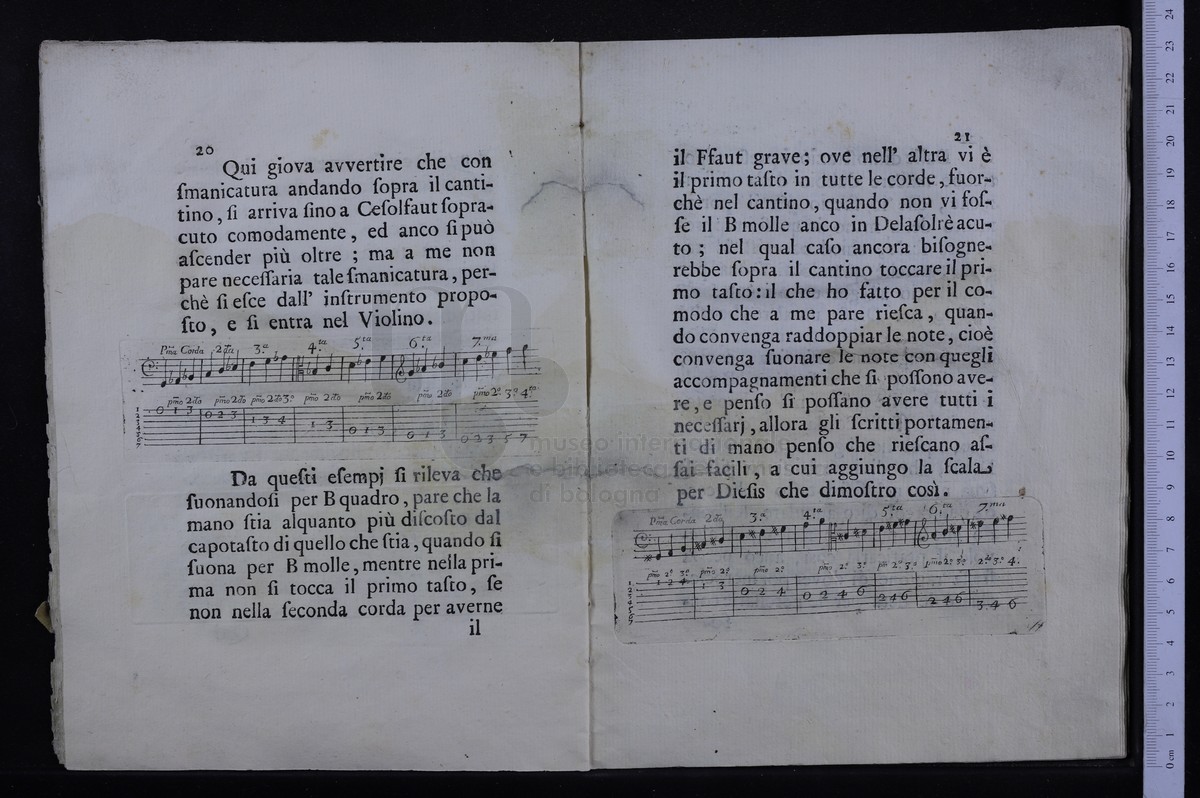 20
Qui giova avvertire che con
ſmanicatura andando ſopra il canti-
tino, ſi arriva ſino a Ceſolfaut ſopra-
cuto comodamente, ed anco ſi può
aſcender più oltre ; ma a me non
pare neceſſaria tale ſmanicatura, per-
chè ſi eſce dall' inſtrumento propo-
ſto, e ſi entra nel Violino.
Pma Corda 2da 3.a 4.ta 5.ta 6.ta 7.ma
pmo 2do pmo 2do pmo 2do 3o pmo 2do pmo 2do pmo 2do pmo 2o 3o 4to
1 2 3 4 5 6 7
0 1 3 0 2 3 1 3 4 1 3 0 1 3 0 1 3 0 2 3 5 7
Da queſti eſempj ſi rileva che
ſuonandoſi per B quadro, pare che la
mano ſtia alquanto più diſcoſto dal
capotaſto di quello che ſtia, quando ſi
ſuona per B molle, mentre nella pri-
ma non ſi tocca il primo taſto, ſe
non nella ſeconda corda per averne
il
21
il Ffaut grave; ove nell' altra vi è
il primo taſto in tutte le corde, fuor-
chè nel cantino, quando non vi foſ-
ſe il B molle anco in Delaſolrè acu-
to ; nel qual caſo ancora biſogne-
rebbe ſopra il cantino toccare il pri-
mo taſto: il che ho fatto per il co-
modo che a me pare rieſca, quan-
do convenga raddoppiar le note, cioè
convenga ſuonare le note con quegli
accompagnamenti che ſi poſſono ave-
re, e penſo ſi poſſano avere tutti i
neceſſarj, allora gli ſcritti portamen-
ti di mano penſo che rieſcano aſ-
ſai facili, a cui aggiungo la ſcala
per Dieſis che dimoſtro così.
Pma Corda 2da 3.a 4.ta 5.ta 6.ta 7.ma
pmo 2o 3o pmo 2o pmo 2o pmo 2o 3o pmo 2o 3o pmo 2o 3o 2do 3o 4.
1 2 3 4 5 6 7
1 2 4 1 3 0 2 4 0 2 4 6 2 4 6 2 4 6 3 4 6
museo internazionale
e biblioteca della musica
di bologna
24
23
22
21
20
19
18
17
16
15
14
13
12
11
10
9
8
7
6
5
4
3
2
1
0 cm